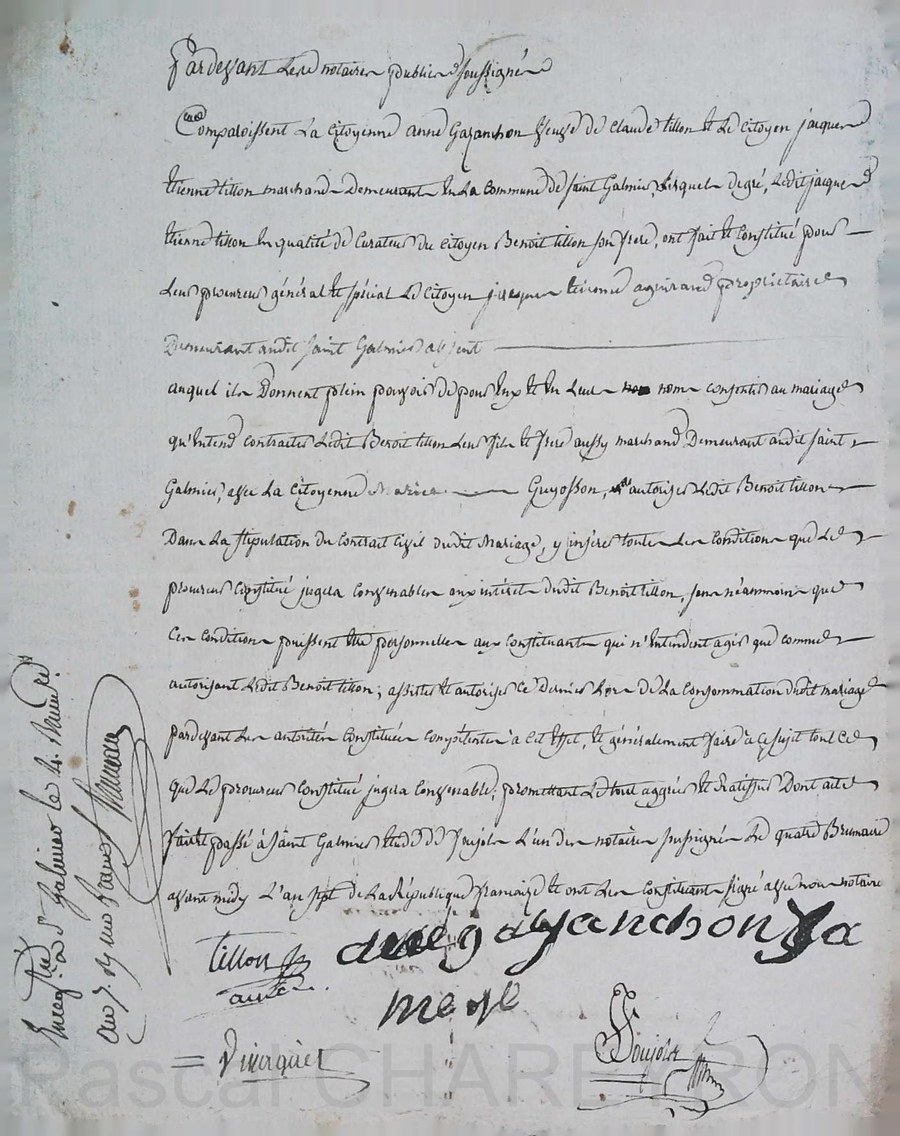 Pardevant Les notaires publics soussignés
Comparoissent La Citoyenne anne Gazanchon veuve de Claude tillon et Le Citoyen jacques
Etienne tillon marchands Demeurants En La Commune de saint Galmier, Lesquels degré, Ledit jacques
Etienne tillon En qualité de Curateur du Citoyen Benoit tillon son frere, ont fait et Constitué pour
Leur procureur général et spécial Le Citoyen jacques Etienne proprietaire
Demeurant audit saint Galmier absent
auquel ils Donnent plein pouvoir de pour Eux et En Leurs noms consentir au mariage
qu'Entend contracter Ledit Benoit tillon Leur fils et frere aussy marchand Demeurant audit saint
Galmier, avec La Citoyenne Marie Guyosson, autoriser Ledit Benoit tillon
Dans La stipulation du Contract Civil dudit Mariage, y insérer toutes Les Conditions que Le
procureur Constitué jugera Convenables aux intérêts dudit Benoit tillon, sans néammoins que
Ces Conditions puissent être personnelles aux Constituants qui n'Entendent agir que comme
autorisant Ledit Benoit tillon; assister et autoriser Ce Dernier Lors de La Consommation dudit mariage
pardevant Les autorités Constituées Compétentes à Cet Effet, et généralement faire à Ce sujet tout Ce
que Le procureur Constitué jugera Convenable; promettant Le tout aggréer et Ratiffier Dont acte
fait et passé à saint Galmier Etude de Poujols L'un des notaires sussignés Le quatre Brumaire
avant midy L'an sept de La République française et ont Les Constituants signé avec nous notaires
tillon
anne gazanchon
Poujols
Enregtré à St Galmier le 4 Brumre
an 7.